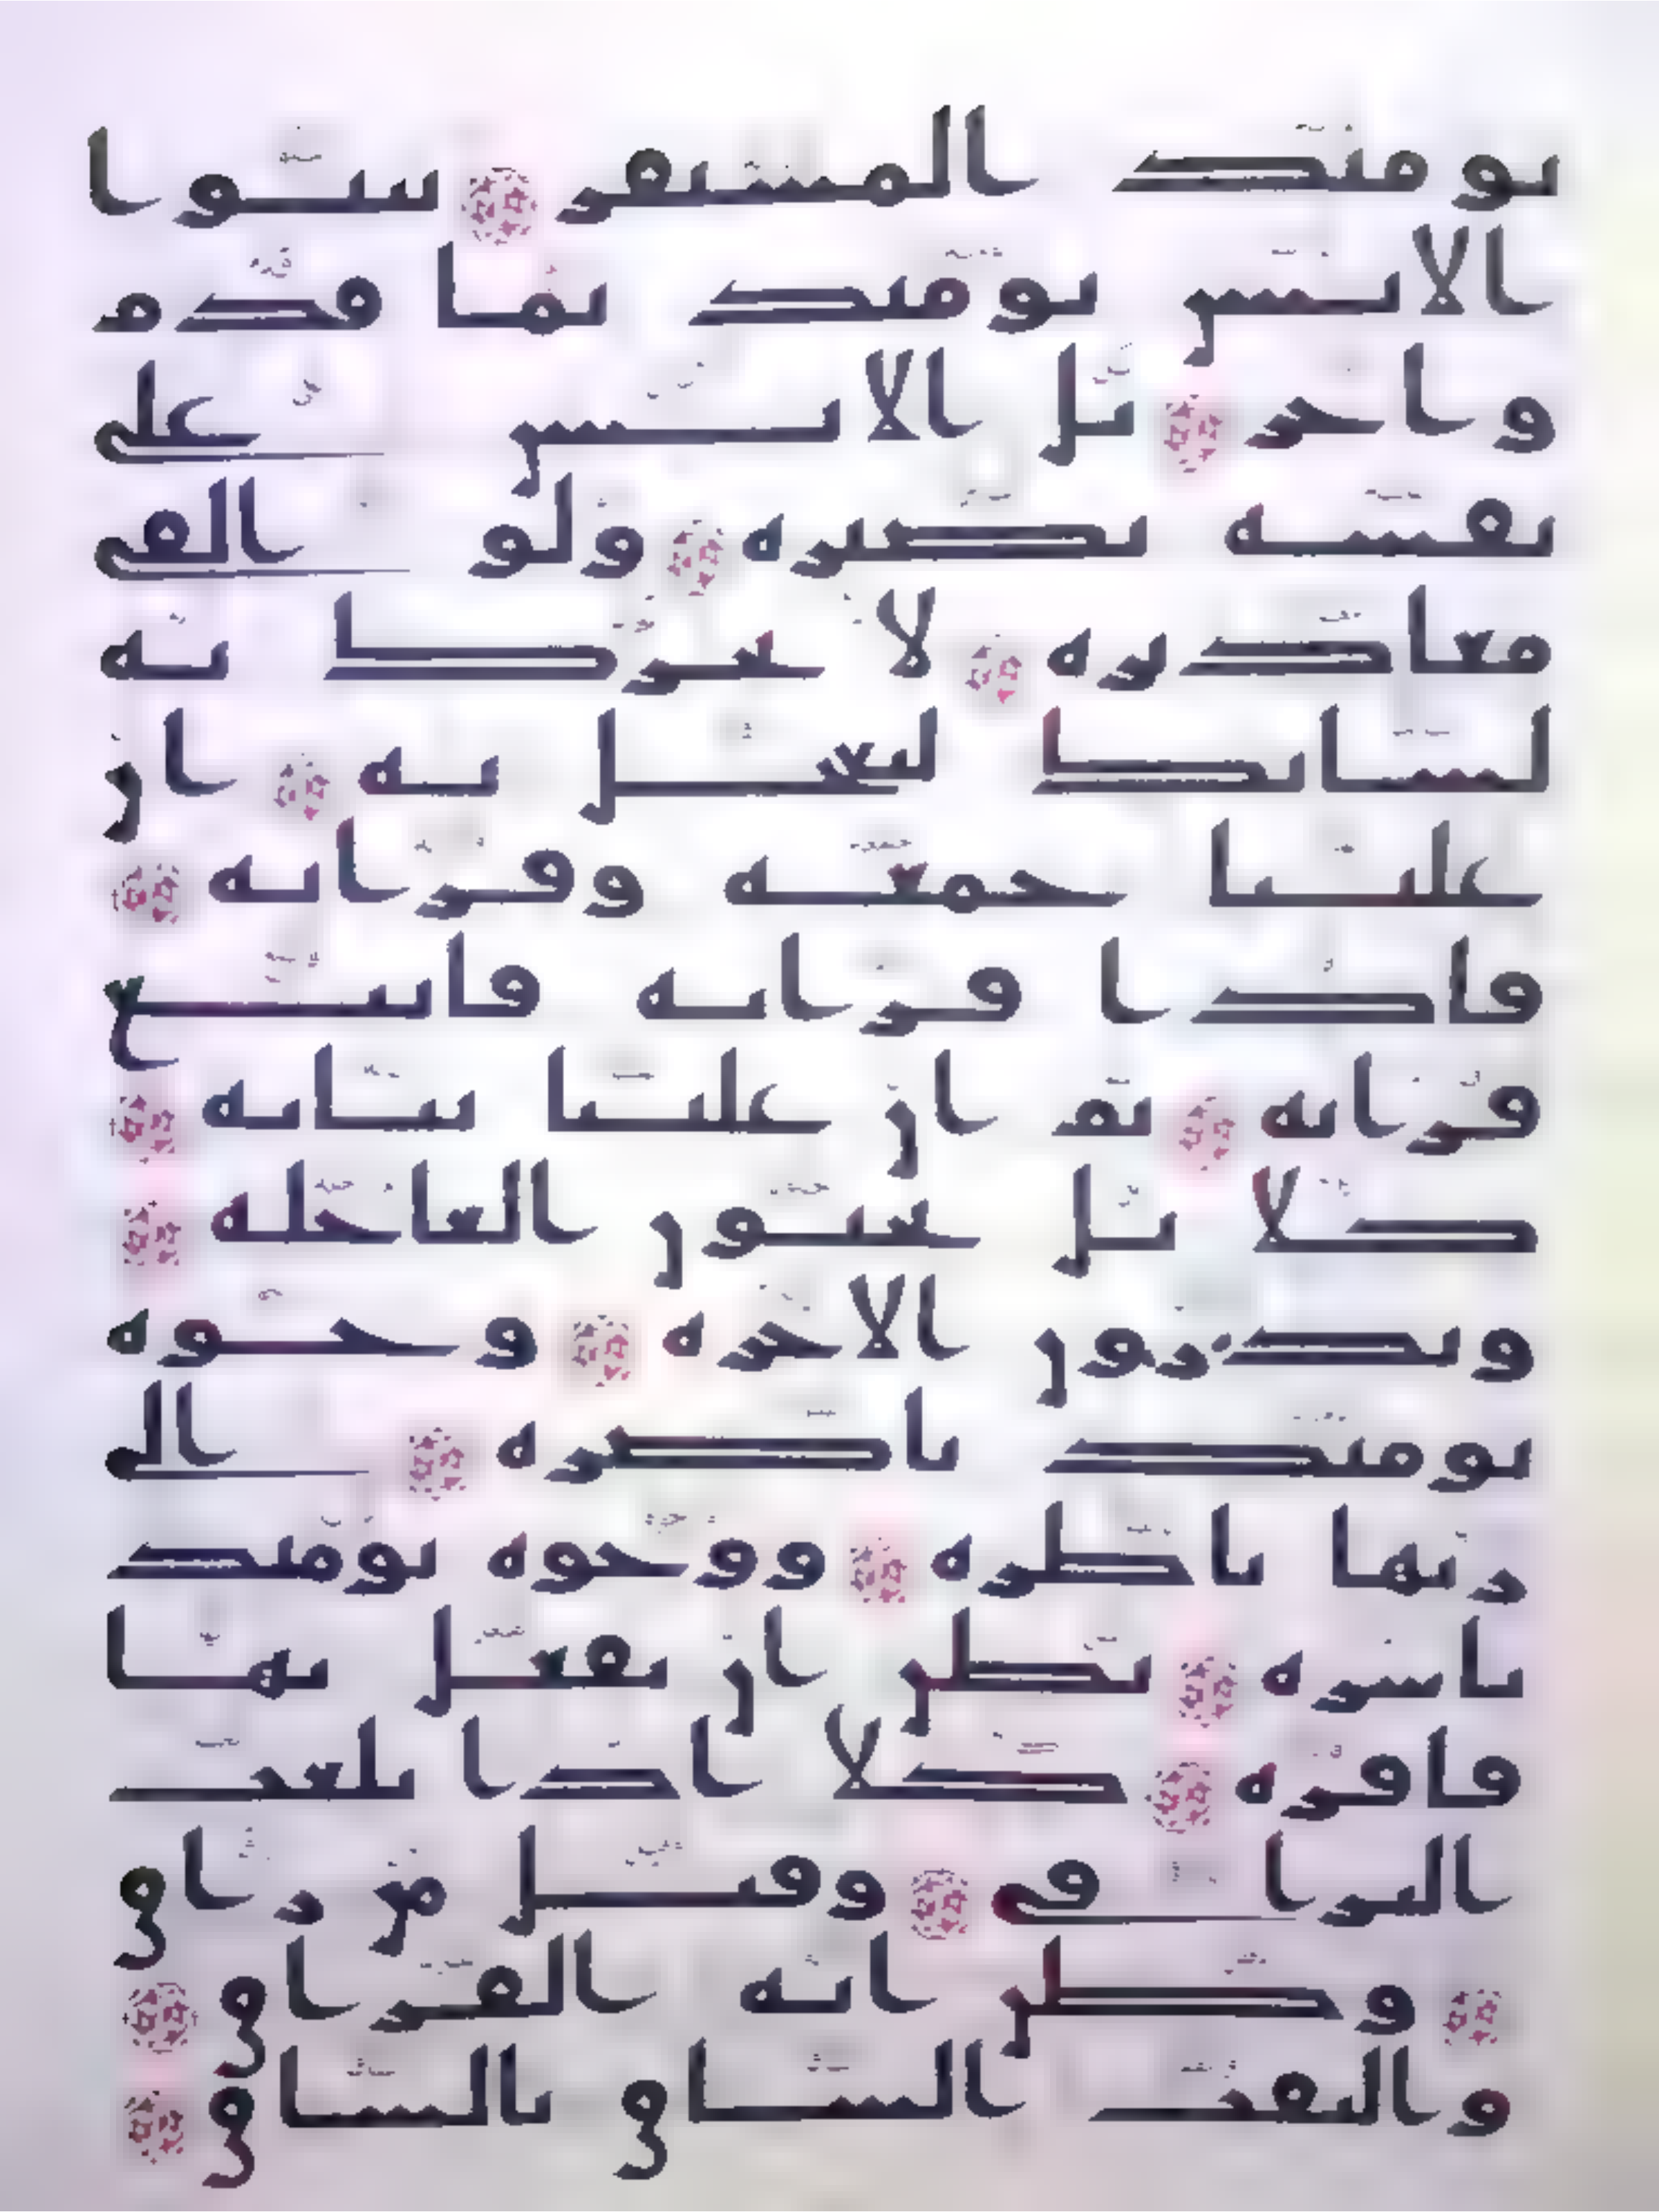 يومئذ المستقر ينبوا
الانسن يومئذ بما قدم
واخر بل الانسن على
نفسه بصيره ولو القى
معاذيره لا تحرك به
لسانك لتعجل به ان
علينا جمعه وقرانه
فاذا قرانه فاتبع
قرانه ثم ان علينا بيانه
كلا بل تحبون العاجله
وتذرون الاخره وجوه
يومئذ ناضره الى
ربها ناظره ووجوه يومئذ
باسره تظن ان يفعل بها
فاقره كلا اذا بلغت
التراقى وقيل من راق
وظن انه الفراق
والتفت الساق بالساق